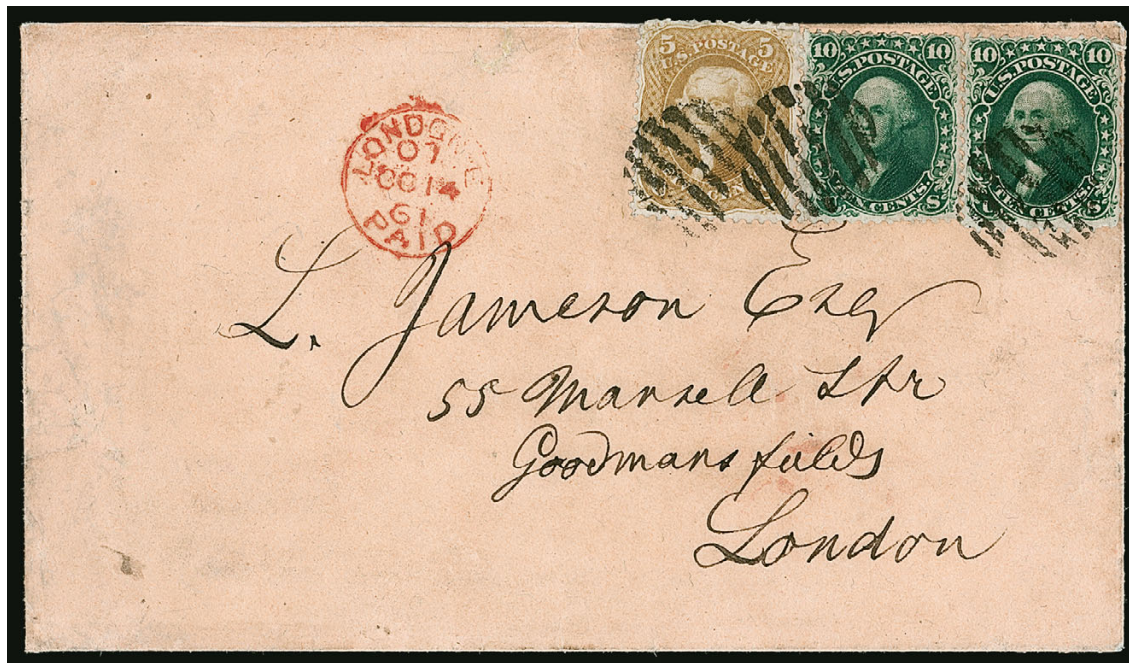 5 5
U.S. POSTAGE
10 10
U.S. POSTAGE
TEN CENTS.
10 10
U.S. POSTAGE
TEN CENTS.
LONDON
07
OC 14
61
PAID
L. Jameson Esq
55 Mansell Str
Goodmansfields
London